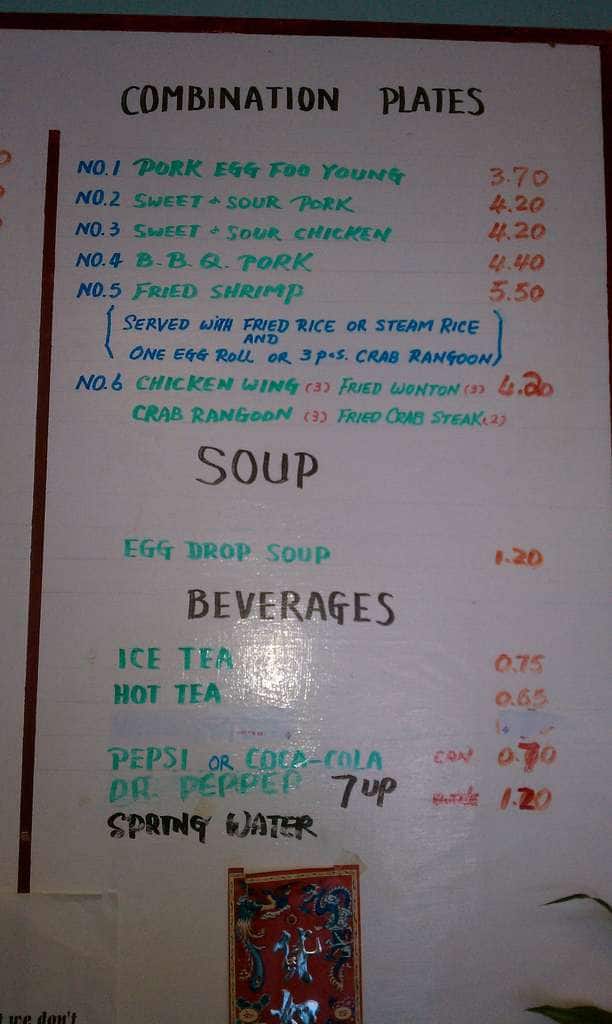 COMBINATION PLATES
NO.1 PORK EGG FOO YOUNG 3.70
NO.2 SWEET + SOUR PORK 4.20
NO.3 SWEET + SOUR CHICKEN 4.20
NO.4 B.B.Q. PORK 4.40
NO.5 FRIED SHRIMP 5.50
(SERVED WITH FRIED RICE OR STEAM RICE
AND
ONE EGG ROLL OR 3 pcs. CRAB RANGOON)
NO.6 CHICKEN WING (3) FRIED WONTON (3) 4.20
CRAB RANGOON (3) FRIED CRAB STEAK (2)
SOUP
EGG DROP SOUP 1.20
BEVERAGES
ICE TEA 0.75
HOT TEA 0.65
PEPSI OR COCA-COLA CAN 0.70
DR. PEPPER 7UP 1.20
SPRING WATER
we don't